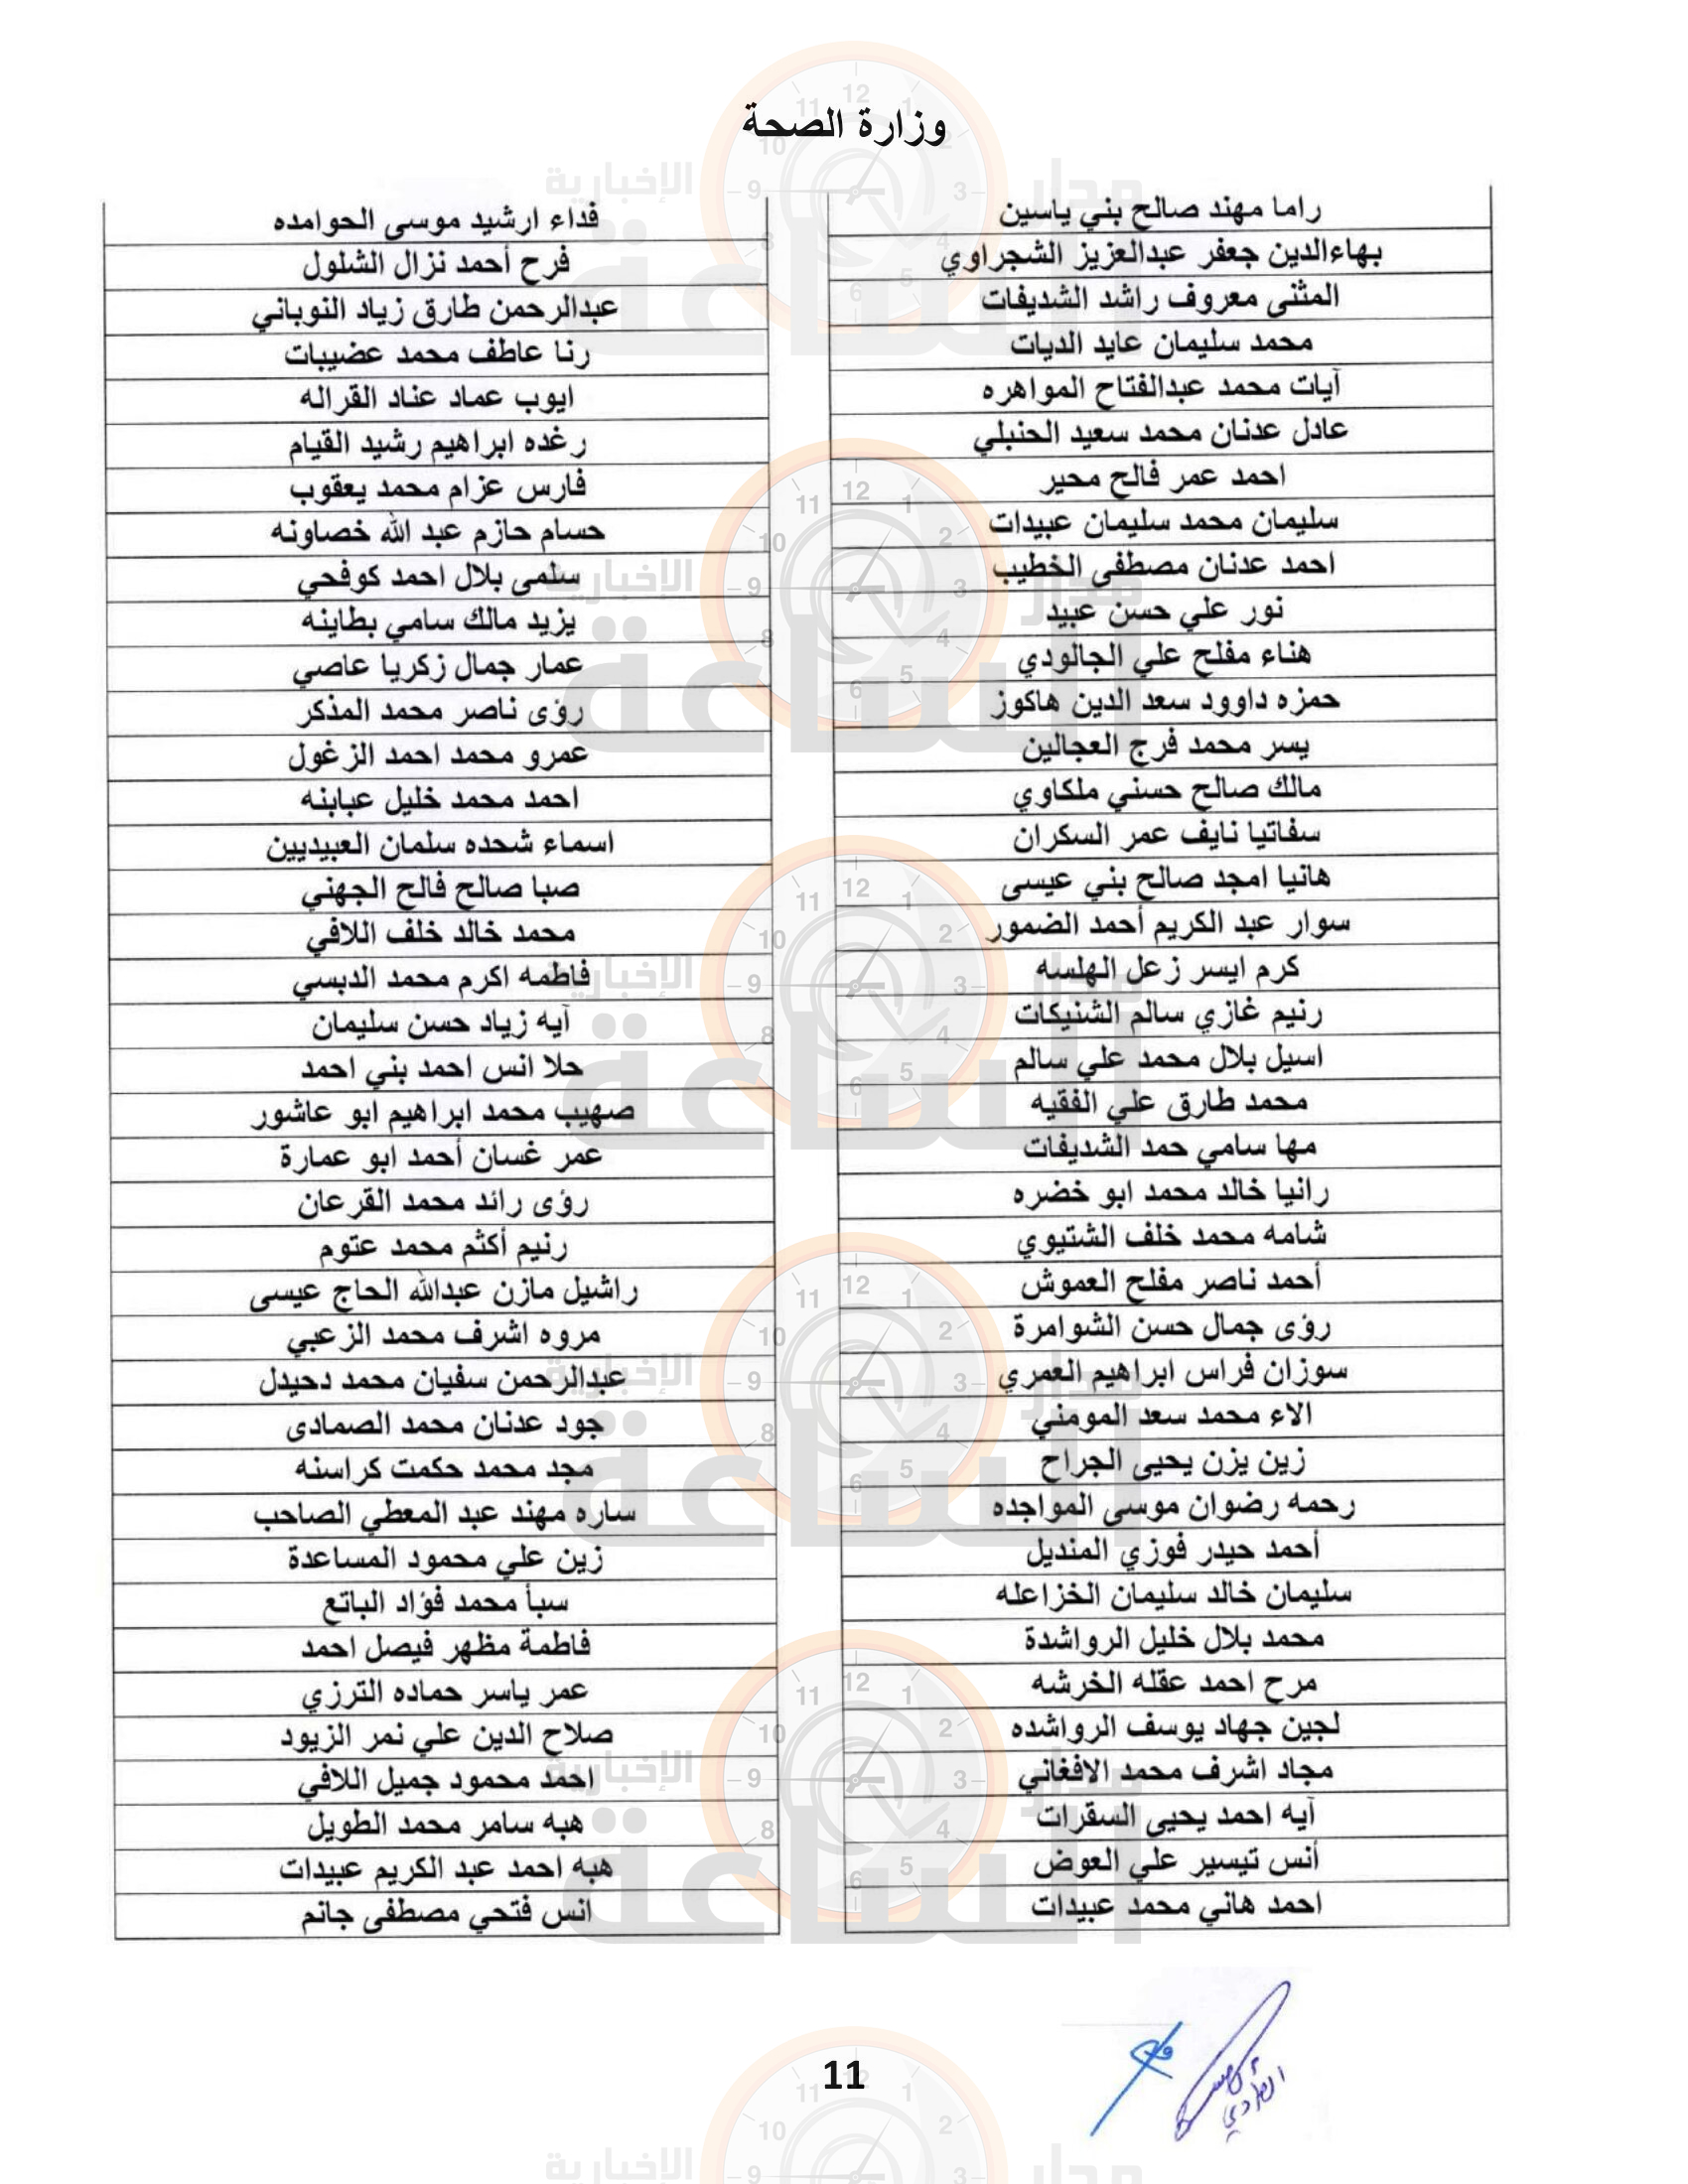 وزارة الصحة
راما مهند صالح بني ياسين
بهاءالدين جعفر عبدالعزيز الشجراوي
المثنى معروف راشد الشديفات
محمد سليمان عايد الديات
آيات محمد عبدالفتاح المواهره
عادل عدنان محمد سعيد الحنبلي
احمد عمر فالح محير
سليمان محمد سليمان عبيدات
احمد عدنان مصطفى الخطيب
نور علي حسن عبيد
هناء مفلح علي الجالودي
حمزه داوود سعد الدين هاكوز
يسر محمد فرج العجالين
مالك صالح حسني ملكاوي
سفاتيا نايف عمر السكران
هانيا امجد صالح بني عيسى
سوار عبد الكريم أحمد الضمور
كرم ايسر زعل الهلسه
رنيم غازي سالم الشنيكات
اسيل بلال محمد علي سالم
محمد طارق علي الفقيه
مها سامي حمد الشديفات
رانيا خالد محمد ابو خضره
شامه محمد خلف الشتيوي
أحمد ناصر مفلح العموش
رؤى جمال حسن الشوامرة
سوزان فراس ابراهيم العمري
الاء محمد سعد المومني
زين يزن يحيى الجراح
رحمه رضوان موسى المواجده
أحمد حيدر فوزي المنديل
سليمان خالد سليمان الخزاعله
محمد بلال خليل الرواشدة
مرح احمد عقله الخرشه
لجين جهاد يوسف الرواشده
مجاد اشرف محمد الافغاني
آيه احمد يحيى السقرات
أنس تيسير علي العوض
احمد هاني محمد عبيدات
فداء ارشيد موسى الحوامده
فرح أحمد نزال الشلول
عبدالرحمن طارق زياد النوباني
رنا عاطف محمد عضيبات
ايوب عماد عناد القراله
رغده ابراهيم رشيد القيام
فارس عزام محمد يعقوب
حسام حازم عبد الله خصاونه
سلمى بلال احمد كوفحي
يزيد مالك سامي بطاينه
عمار جمال زكريا عاصي
رؤى ناصر محمد المذكر
عمرو محمد احمد الزغول
احمد محمد خليل عبابنه
اسماء شحده سلمان العبيديين
صبا صالح فالح الجهني
محمد خالد خلف اللافي
فاطمه اكرم محمد الدبسي
آيه زياد حسن سليمان
حلا انس احمد بني احمد
صهيب محمد ابراهيم ابو عاشور
عمر غسان أحمد ابو عمارة
رؤى رائد محمد القرعان
رنيم أكثم محمد عتوم
راشيل مازن عبدالله الحاج عيسى
مروه اشرف محمد الزعبي
عبدالرحمن سفيان محمد دحيدل
جود عدنان محمد الصمادى
مجد محمد حكمت كراسنه
ساره مهند عبد المعطي الصاحب
زين علي محمود المساعدة
سبأ محمد فؤاد الباتع
فاطمة مظهر فيصل احمد
عمر ياسر حماده الترزي
صلاح الدين علي نمر الزيود
احمد محمود جميل اللافي
هبه سامر محمد الطويل
هبه احمد عبد الكريم عبيدات
انس فتحي مصطفى جانم
11